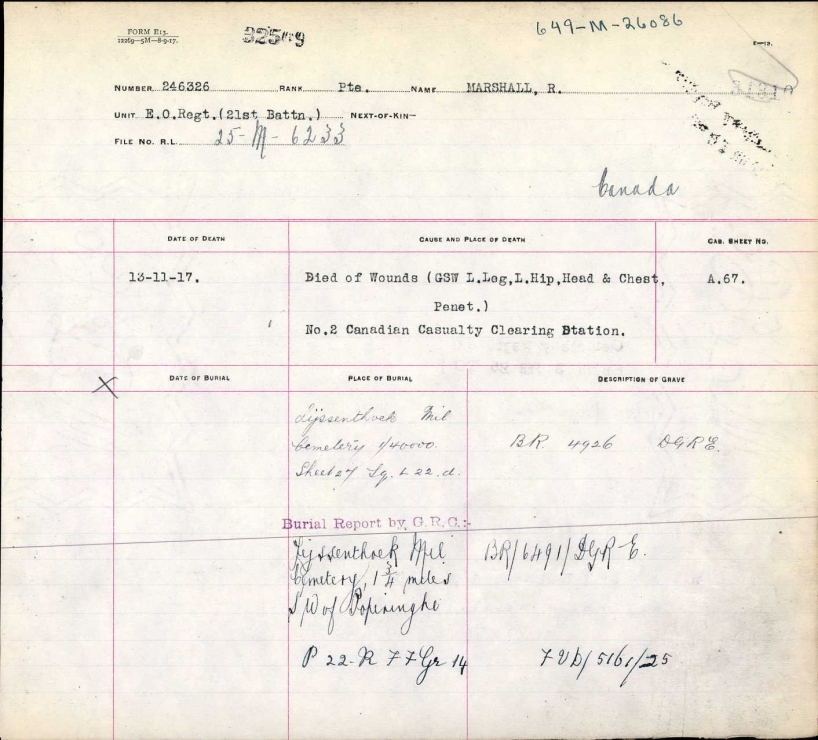 FORM E13.
12269—5M—8-9-17.
649-M-26086
E—13.
NUMBER 246326 RANK Pte. NAME MARSHALL, R.
UNIT E.O.Regt.(21st Battn.) NEXT-OF-KIN—
FILE NO. R.L. 25-M-6233
Canada
DATE OF DEATH CAUSE AND PLACE OF DEATH CAS. SHEET NO.
13-11-17. Died of Wounds (GSW L.Leg,L.Hip,Head & Chest, A.67.
Penet.)
No.2 Canadian Casualty Clearing Station.
DATE OF BURIAL PLACE OF BURIAL DESCRIPTION OF GRAVE
Lijssenthoek Mil
Cemetery 1/40000. B.R. 4926 D.G.R.E.
Sheet 27 Sq. L 22. d.
Burial Report by G.R.C.:-
Lijssenthoek Mil BR/6491/DGR E.
Cemetery, 1 3/4 miles
S W of Poperinghe
P 22-R 7 7 Gr 14